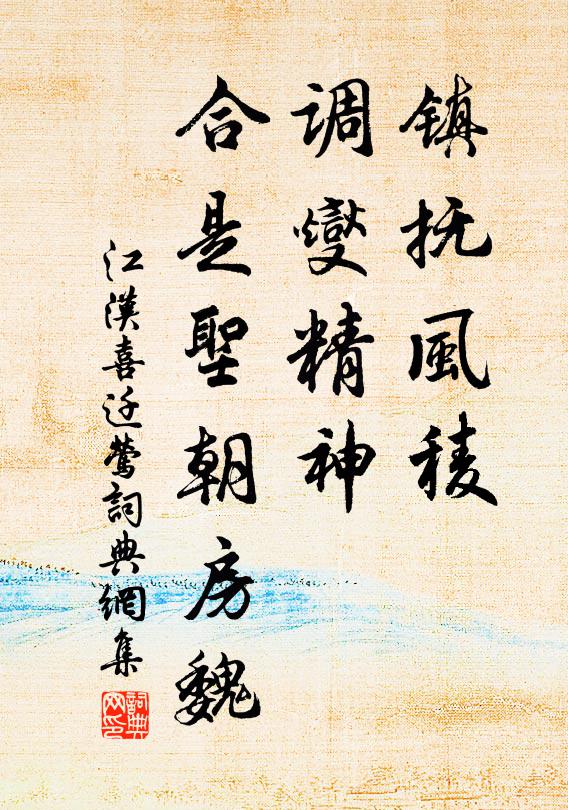 镇抚風稜
調燮精神
合是聖朝房魏
江漢喜迁鶯詞典網集
詞典網印